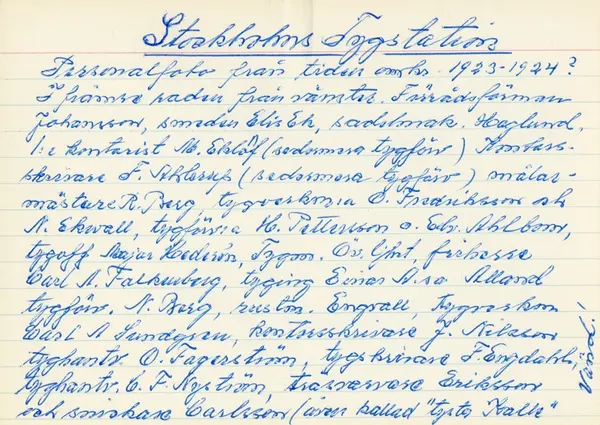 Stockholms Tygstation
Personalfoto från tiden omkr. 1923-1924?
I främre raden från vänster. Förrådsförman
Johansson, smeden Elis Ek, sadelmak. Haglund,
1:e kontorist M. Eklöf (sedermera tygförv) Kontors-
skrivare F. Ahlerup (sedermera tygförv) målar-
mästare R. Berg, tygverkm:a O. Fredriksson och
N. Ekwall, tygförv:a H. Pettersson o. Edv. Ahlbom,
tygoff Major Hederén, Tygm. Öv.Ljtnt, friherre
Carl A. Falkenberg, tyging Einar A:so Alland
tygförv. N. Berg, rustm. Engvall, tygverkm
Carl A Lundgren, kontorsskrivare J. Nilsson
tyghantv O. Fagerström, tygskrivare F Engdahl,
tyghantv. C. F. Nyström, Eriksson
och snickare Carlsson (även kallad "tysta Kalle"
Vänd!